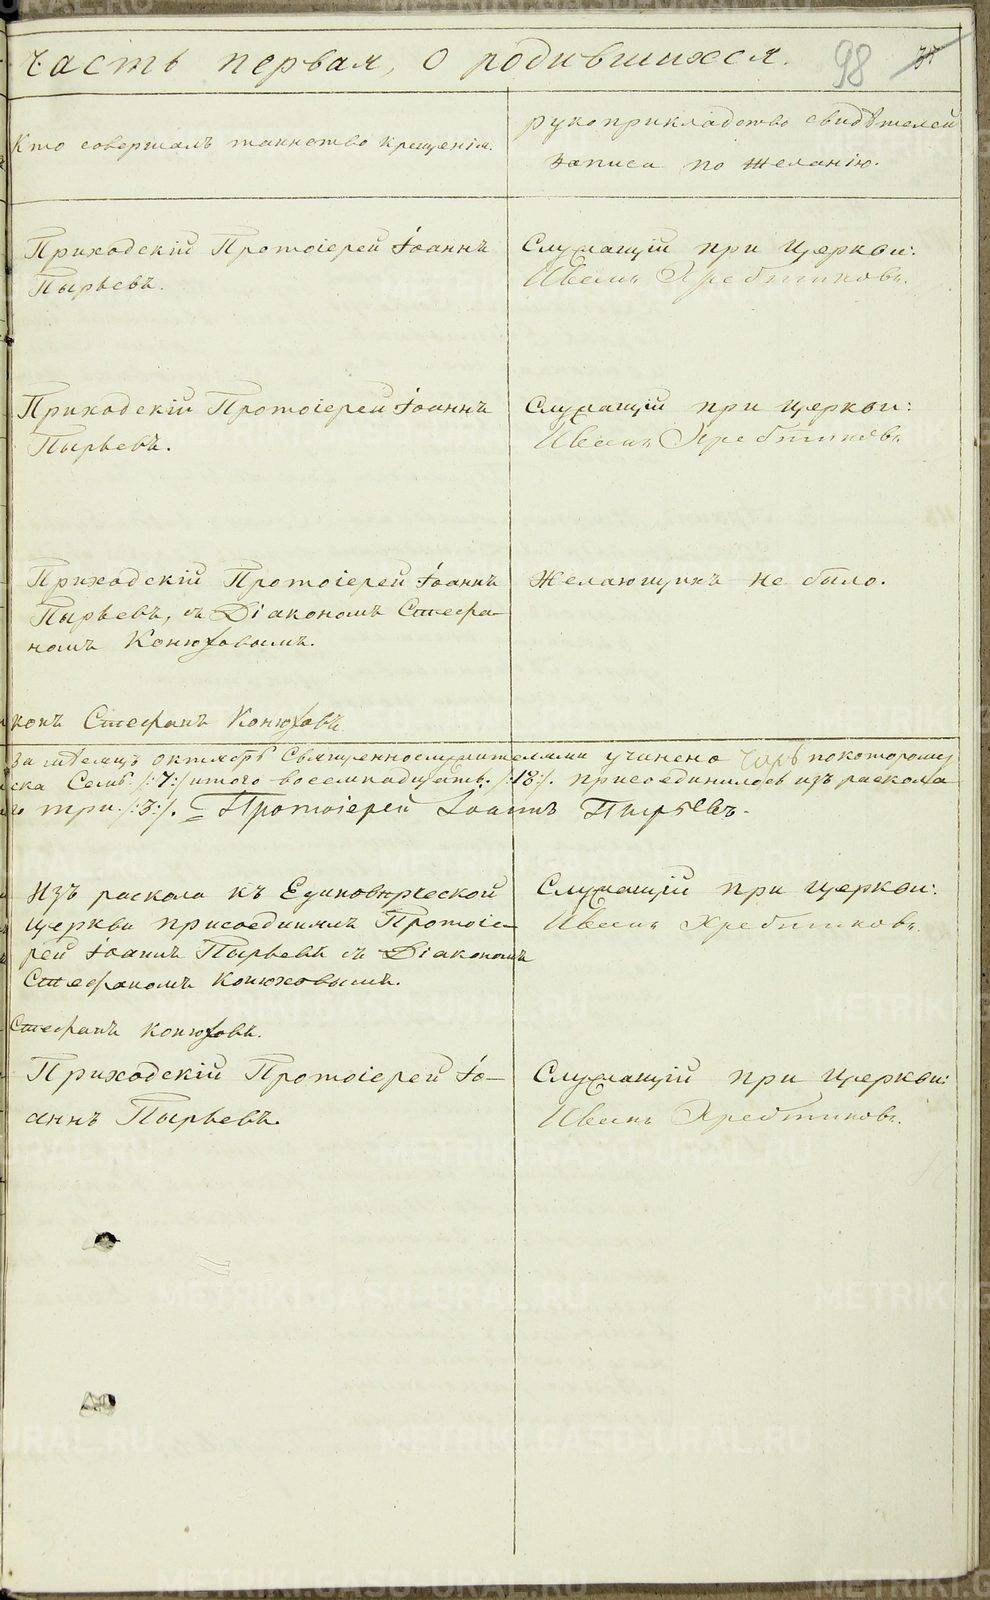 Часть первая, о родившихся.
98
Кто совершалъ таинство крещенія.
рукоприкладство свидѣтелей
записи по желанію.
Приходскій Протоіерей Іоаннъ
Пырьевъ.
Служащій при церкви:
Иванъ Хребтиковъ.
Приходскій Протоіерей Іоаннъ
Пырьевъ.
Служащій при церкви:
Иванъ Хребтиковъ.
Приходскій Протоіерей Іоаннъ
Пырьевъ, съ Діакономъ Стефа-
номъ Конюховымъ.
Желающихъ не было.
конъ Стефанъ Конюховъ
За мѣсяцъ октябрь Священнослужителями учинено по которому
ска Семь /:7:/ итого восемнадцать /:18:/. присоединилось изъ раскола
го три /:3:/. Протоіерей Іоаннъ Пырьевъ.
Изъ раскола къ Единовѣрческой
церкви присоединилъ Протоіе-
рей Іоаннъ Пырьевъ съ Діакономъ
Стефаномъ Конюховымъ.
Служащій при церкви:
Иванъ Хребтиковъ.
Стефанъ Конюховъ.
Приходскій Протоіерей Іо-
аннъ Пырьевъ.
Служащій при церкви:
Иванъ Хребтиковъ.
METRIKI.GASO-URAL.RU